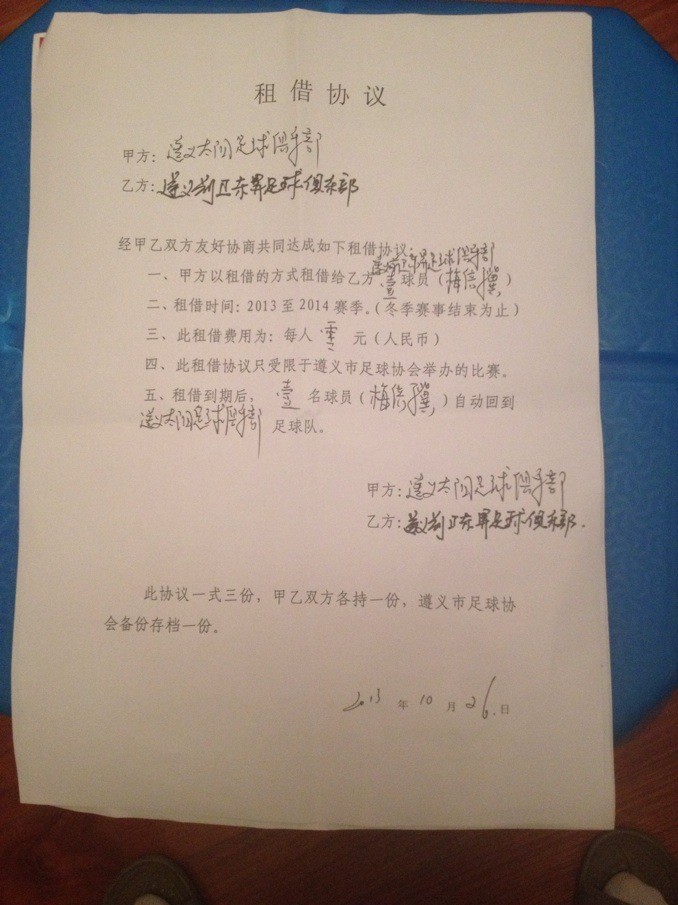 租借协议
甲方：遵义太阳足球俱乐部
乙方：遵义前卫东界足球俱乐部
经甲乙双方友好协商共同达成如下租借协议：
足球俱乐部
一、甲方以租借的方式租借给乙方 壹 球员（梅信骥）
二、租借时间：2013至2014赛季。（冬季赛事结束为止）
三、此租借费用为：每人 零 元（人民币）
四、此租借协议只受限于遵义市足球协会举办的比赛。
五、租借到期后， 壹 名球员（梅信骥）自动回到
遵义太阳足球俱乐部 足球队。
甲方：遵义太阳足球俱乐部
乙方：遵义前卫东界足球俱乐部.
此协议一式三份，甲乙双方各持一份，遵义市足球协
会备份存档一份。
2013 年 10 月 26. 日